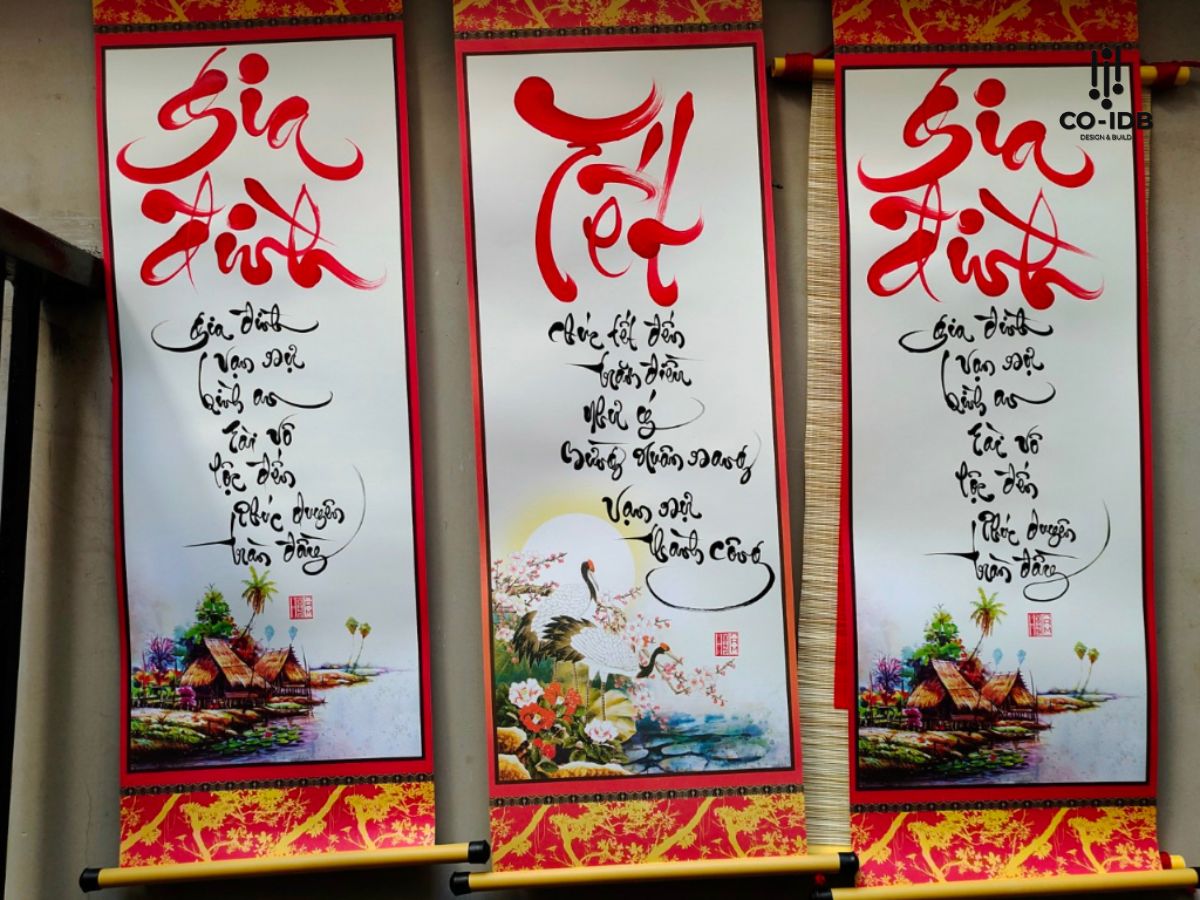 Gia
đình
Gia đình
vạn sự
bình an
Tài vô
lộc đến
Phúc duyên
tràn đầy
Tết
Chúc tết đến
trăm điều
như ý
Mừng xuân sang
vạn sự
thành công
Gia
đình
Gia đình
vạn sự
bình an
Tài vô
lộc đến
Phúc duyên
tràn đầy
CO-IDB
DESIGN & BUILD